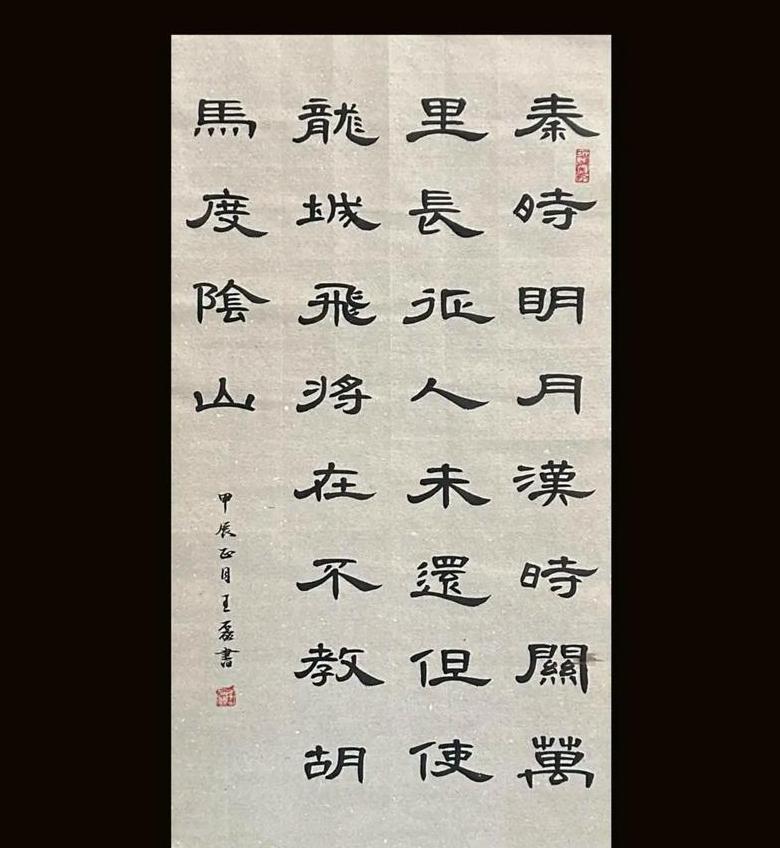 秦時明月漢時關萬
里長征人未還但使
龍城飛將在不教胡
馬度陰山
甲辰正月王磊書